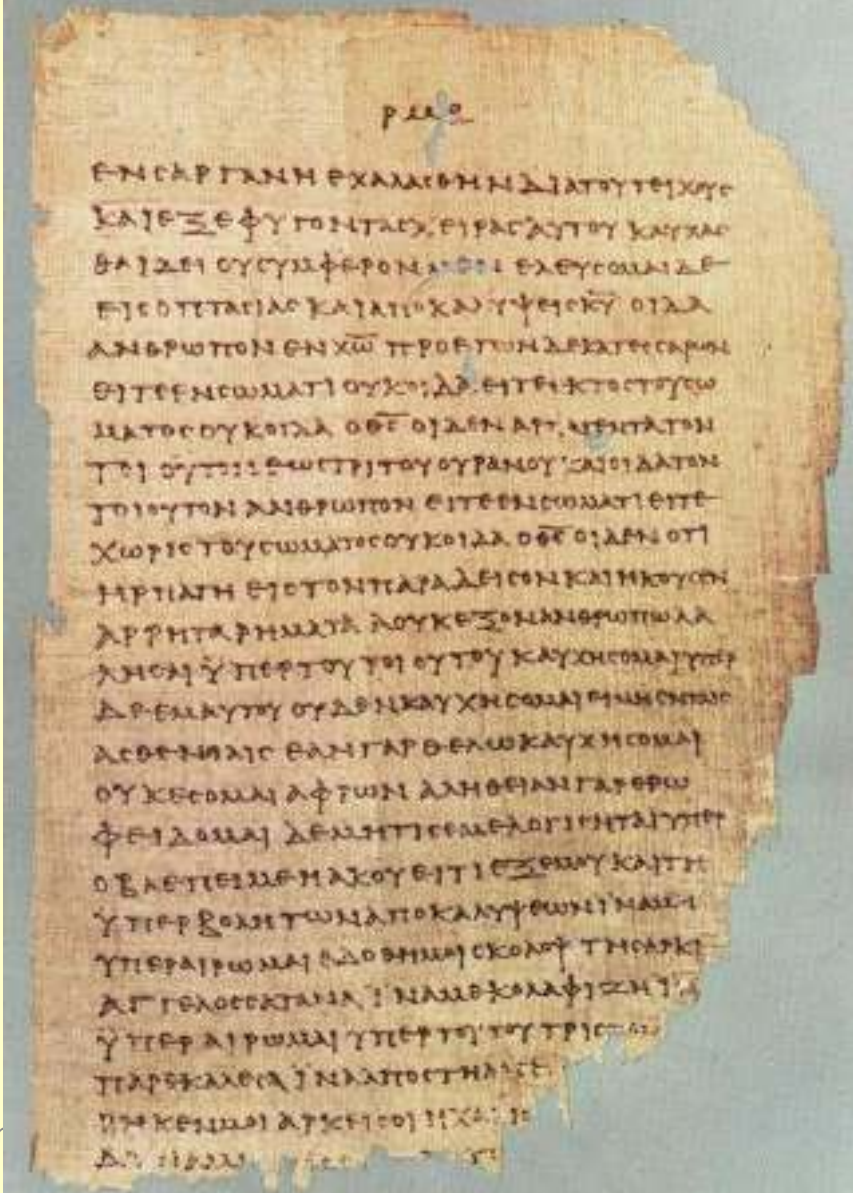 ρμθ
ΕΝ ΣΑΡΓΑΝΗ ΕΧΑΛΑΣΘΗΝ ΔΙΑ ΤΟΥ ΤΕΙΧΟΥΣ
ΚΑΙ ΕΞΕΦΥΓΟΝ ΤΑΣ ΧΕΙΡΑΣ ΑΥΤΟΥ ΚΑΥΧΑΣ
ΘΑΙ ΔΕΙ ΟΥ ΣΥΜΦΕΡΟΝ ΜΕΝ ΕΛΕΥΣΟΜΑΙ ΔΕ
ΕΙΣ ΟΠΤΑΣΙΑΣ ΚΑΙ ΑΠΟΚΑΛΥΨΕΙΣ Κ̅Υ̅ ΟΙΔΑ
ΑΝΘΡΩΠΟΝ ΕΝ Χ̅Ω̅ ΠΡΟ ΕΤΩΝ ΔΕΚΑΤΕΣΣΑΡΩΝ
ΕΙΤΕ ΕΝ ΣΩΜΑΤΙ ΟΥΚ ΟΙΔΑ ΕΙΤΕ ΕΚΤΟΣ ΤΟΥ ΣΩ
ΜΑΤΟΣ ΟΥΚ ΟΙΔΑ Ο Θ̅Σ̅ ΟΙΔΕΝ ΑΡΠΑΓΕΝΤΑ ΤΟΝ
ΤΟΙΟΥΤΟΝ ΕΩΣ ΤΡΙΤΟΥ ΟΥΡΑΝΟΥ ΚΑΙ ΟΙΔΑ ΤΟΝ
ΤΟΙΟΥΤΟΝ ΑΝΘΡΩΠΟΝ ΕΙΤΕ ΕΝ ΣΩΜΑΤΙ ΕΙΤΕ
ΧΩΡΙΣ ΤΟΥ ΣΩΜΑΤΟΣ ΟΥΚ ΟΙΔΑ Ο Θ̅Σ̅ ΟΙΔΕΝ ΟΤΙ
ΗΡΠΑΓΗ ΕΙΣ ΤΟΝ ΠΑΡΑΔΕΙΣΟΝ ΚΑΙ ΗΚΟΥΣΕΝ
ΑΡΡΗΤΑ ΡΗΜΑΤΑ Α ΟΥΚ ΕΞΟΝ ΑΝΘΡΩΠΩ ΛΑ
ΛΗΣΑΙ ΫΠΕΡ ΤΟΥ ΤΟΙΟΥΤΟΥ ΚΑΥΧΗΣΟΜΑΙ ΥΠΕΡ
ΔΕ ΕΜΑΥΤΟΥ ΟΥΔΕΝ ΚΑΥΧΗΣΟΜΑΙ ΕΙ ΜΗ ΕΝ ΤΑΙΣ
ΑΣΘΕΝΕΙΑΙΣ ΕΑΝ ΓΑΡ ΘΕΛΩ ΚΑΥΧΗΣΟΜΑΙ
ΟΥΚ ΕΣΟΜΑΙ ΑΦΡΩΝ ΑΛΗΘΕΙΑΝ ΓΑΡ ΕΡΩ
ΦΕΙΔΟΜΑΙ ΔΕ ΜΗ ΤΙΣ ΕΜΕ ΛΟΓΙΣΗΤΑΙ ΥΠΕΡ
Ο ΒΛΕΠΕΙ ΜΕ Η ΑΚΟΥΕΙ ΤΙ ΕΞ ΕΜΟΥ ΚΑΙ ΤΗ
ΫΠΕΡΒΟΛΗ ΤΩΝ ΑΠΟΚΑΛΥΨΕΩΝ ΙΝΑ ΜΗ
ΥΠΕΡΑΙΡΩΜΑΙ ΕΔΟΘΗ ΜΟΙ ΣΚΟΛΟΨ ΤΗ ΣΑΡΚΙ
ΑΓΓΕΛΟΣ ΣΑΤΑΝΑ ΪΝΑ ΜΕ ΚΟΛΑΦΙΖΗ Ι
ΫΠΕΡΑΙΡΩΜΑΙ ΥΠΕΡ ΤΟΥΤΟΥ ΤΡΙΣ
ΠΑΡΕΚΑΛΕΣΑ ΪΝΑ ΑΠΟΣΤΗ ΑΠ Ε
ΡΗΚΕΝ ΜΟΙ ΑΡΚΕΙ ΣΟΙ Η ΧΑ